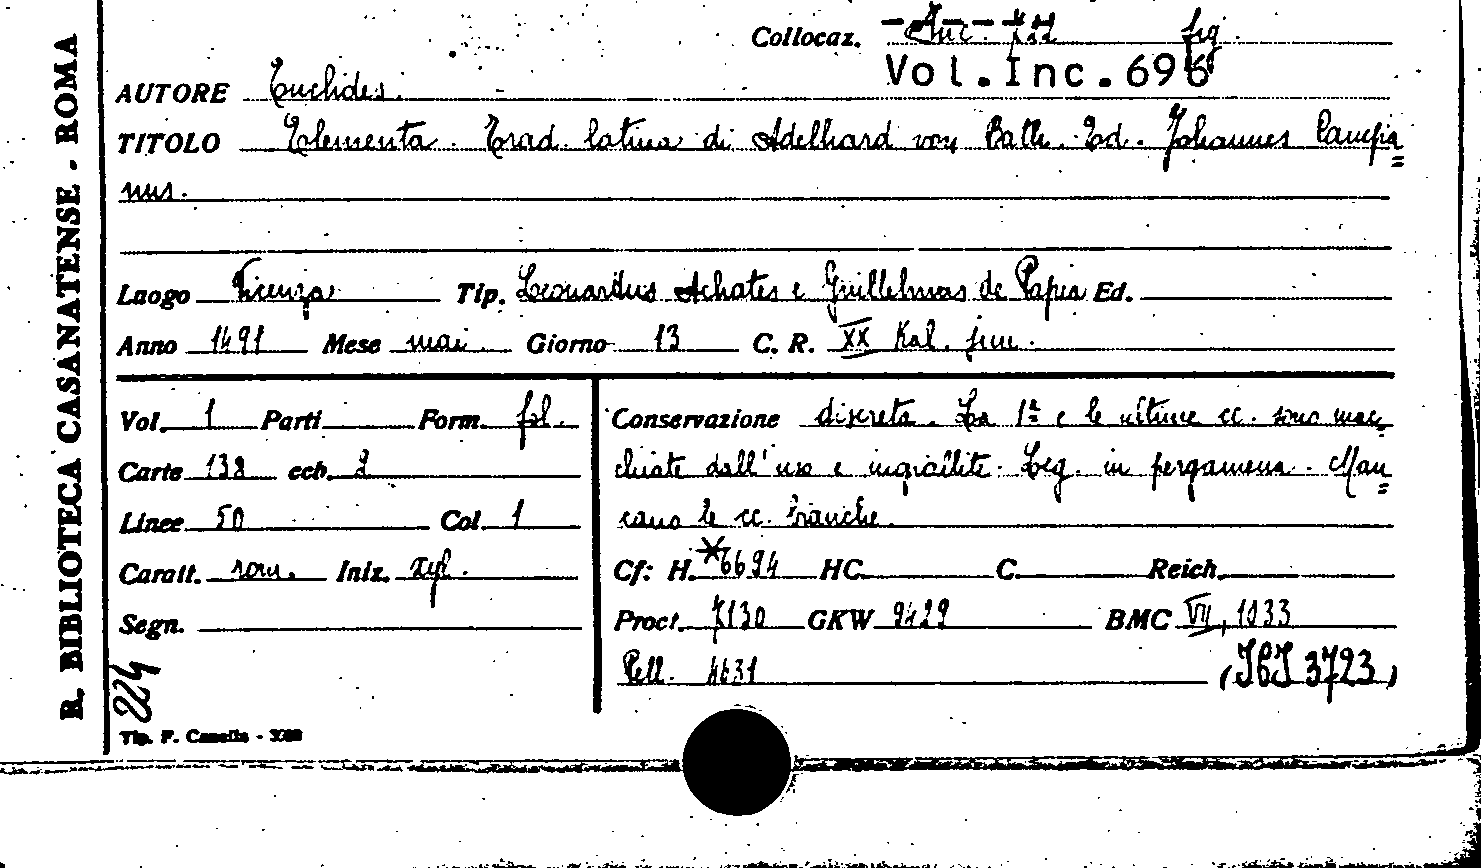 R. BIBLIOTECA CASANATENSE - ROMA
Collocaz. Inc. fig.
Vol.Inc.696
AUTORE Euclides.
TITOLO Elementa. Trad. latina di Adelhard von Bath. Ed. Johannes Campa=
nus.
Luogo Vicenza Tip. Leonardus Achates e Guillelmus de Papia Ed.
Anno 1491 Mese mai. Giorno 13 C. R. XX Kal. jun.
Vol. 1 Parti Form. fol.
Carte 138 ecb. 2
Linee 50 Col. 1
Caratt. rom. Iniz. xyl.
Segn.
Conservazione discreta. La 1ª e le ultime cc. sono mac=
chiate dall'uso e ingiallite. Leg. in pergamena. Man=
cano le cc. bianche.
Cf: H. *6694 HC. C. Reich.
Proct. 7130 GKW 9429 BMC VII, 1033
Pell. 4631 (IGI 3723)
224
Tip. F. Canella - XIII